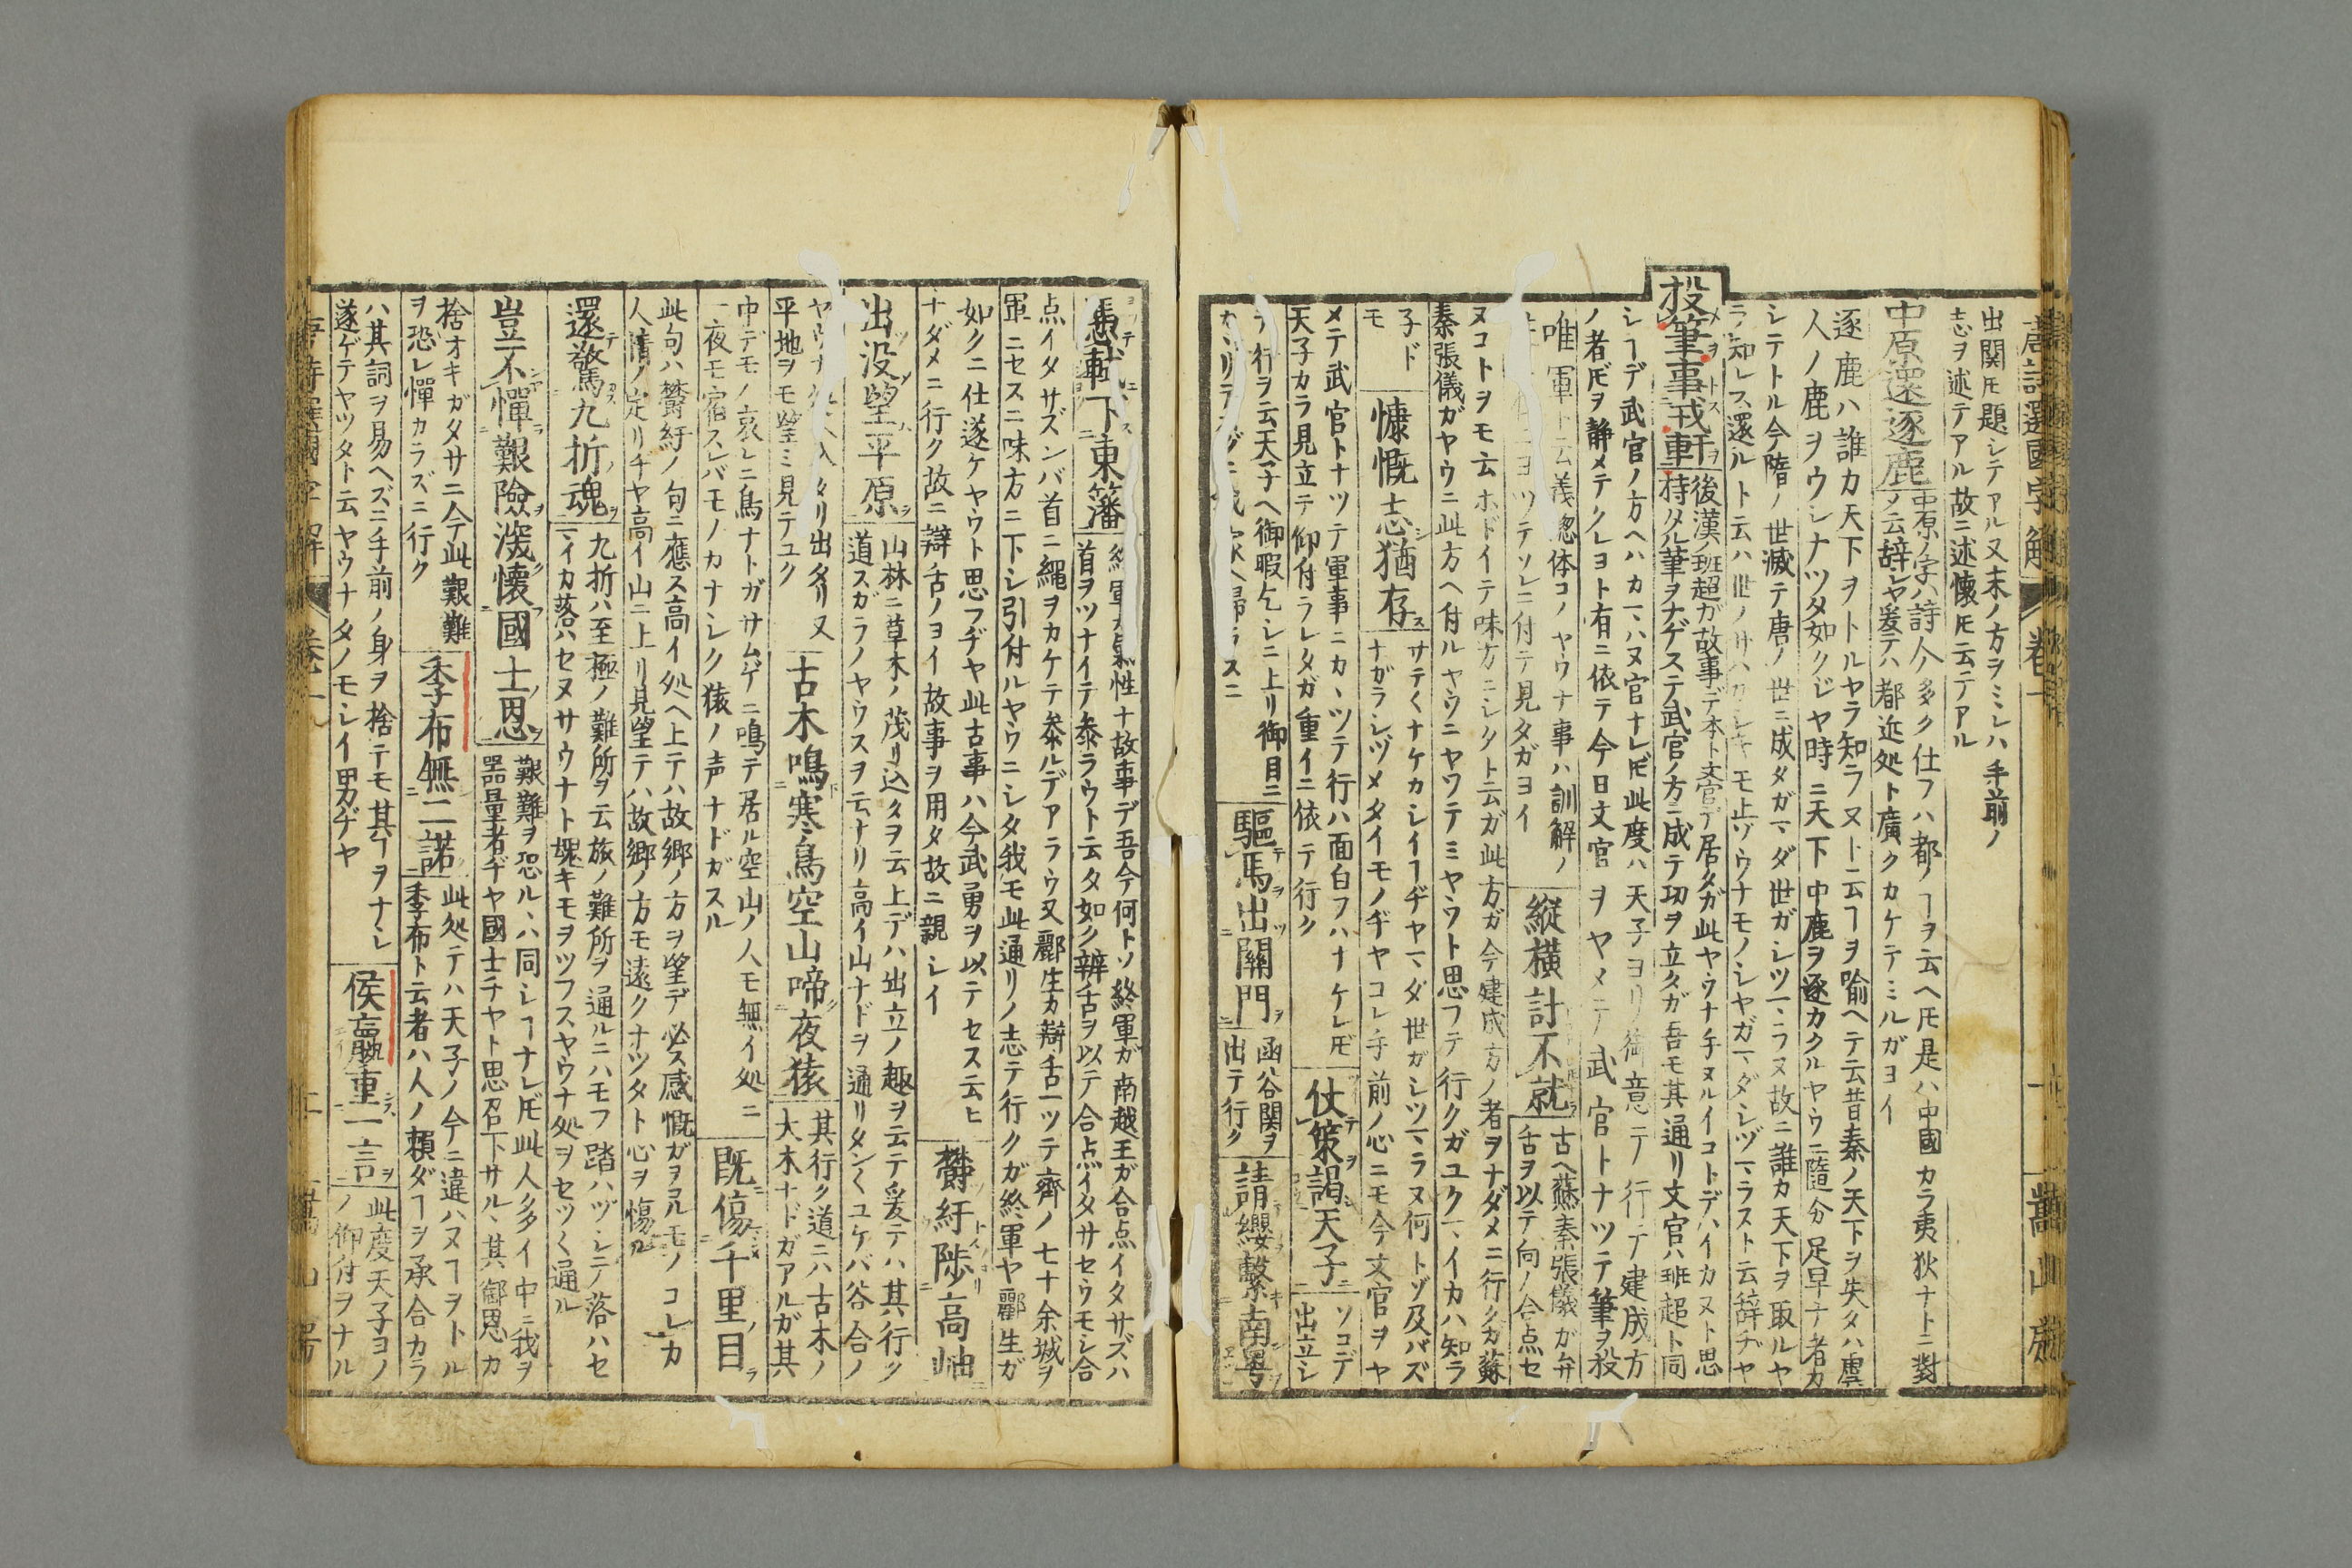 唐詩選國字解 卷一 嵩山房
出関𪜈題シテアル又末ノ方ヲミレハ手前ノ
志ヲ述テアル故ニ述懐𪜈云テアル
中原還逐鹿
中原ノ字ハ詩人多ク仕フハ都ノヿヲ云ヘ𪜈是ハ中國カラ夷狄ナトニ對
ノ云辞レヤ爰テハ都近処ト廣クカケテミルガヨイ
逐鹿ハ誰カ天下ヲトルヤラ知ラヌト云ヿヲ喻ヘテ云昔秦ノ天下ヲ失タハ譬
人ノ鹿ヲウシナツタ如クジヤ時ニ天下中鹿ヲ逐カクルヤウニ隨分足早ナ者カ
シテトル今隋ノ世滅テ唐ノ世ニ成タガマダ世ガシツマラヌ故ニ誰カ天下ヲ取ルヤ
ラ知レヌ還ルト云ハ世ノサハガシキモ止ソウナモノシヤガマダシヅマラヌト云辞ヂヤ
投筆事戎軒
後漢ノ班超ガ故事デ本ト文官デ居タガ此ヤウナ手ヌルイコトデハイカヌト思
持タル筆ヲナゲステ武官ノ方ニ成テ功ヲ立タガ吾モ其通リ文官ハ班超ト同
シヿデ武官ノ方ヘハカマハヌ官ナレ𪜈此度ハ天子ヨリ御意ニテ行テ建成方
ノ者𪜈ヲ静メテクレヨト有ニ依テ今日文官ヲヤメテ武官トナツテ筆ヲ投
唯軍ト云義惣体コノヤウナ事ハ訓解ノ
ヨツテソレニ付テ見タガヨイ
縱橫計不就
古ヘ蘇秦張儀ガ弁
舌ヲ以テ向ノ合点セ
ヌコトヲモ云ホドイテ味方ニシタト云ガ此方ガ今建成方ノ者ヲナダメニ行クガ蘇
秦張儀ガヤウニ此方ヘ付ルヤウニヤツテミヤウト思フテ行クガユクマイカハ知ラ
子ド
モ
慷慨志猶存
サテ〱ナケカシイヿヂヤマダ世ガシツマラヌ何トゾ及バズ
ナガラシヅメタイモノヂヤコレ手前ノ心ニモ今文官ヲヤ
メテ武官トナツテ軍事ニカヽツテ行ハ面白フハナケレ𪜈
天子カラ見立テ仰付ラレタガ重イニ依テ行ク
仗策謁天子
ソコデ
出立シ
テ行ヲ云天子ヘ御暇乞シニ上リ御目ニ
驅馬出關門
函谷関ヲ
出テ行ク
請纓繫南粤
憑軾下東藩
首ヲツナイテ參ラウト云タ如ク辨舌ヲ以テ合点イタサセウモシ合
点イタサズンバ首ニ繩ヲカケテ參ルデアラウ又酈生カ辯舌一ツテ齊ノ七十余城ヲ
軍ニセスニ味方ニ下シ引付ルヤウニシタ我モ此通リノ志テ行クガ終軍ヤ酈生ガ
如クニ仕遂ケヤウト思フヂヤ此古事ハ今武勇ヲ以テセス云ヒ
ナダメニ行ク故ニ辯舌ノヨイ故事ヲ用タ故ニ親シイ
欝紆陟高岫
出没望平原
山林ニ草木ノ茂リ込タヲ云上デハ出立ノ趣ヲ云テ爰テハ其行ク
道スガラノヤウスヲ云ナリ高イ山ナドヲ通リタン〱ユケバ谷合ノ
ヤウナ処ヘ入タリ出タリ又
平地ヲモ望ミ見テユク
古木鳴寒鳥空山啼夜猿
其行ク道ニハ古木ノ
大木ナドガアルガ其
中デモノ哀レニ鳥ナトガサムゲニ鳴テ居ル空山ノ人モ無イ処ニ
一夜モ宿スレバモノカナシク猿ノ声ナドガスル
既傷千里目
此句ハ欝紆ノ句ニ應ス高イ処ヘ上テハ故郷ノ方ヲ望デ必ス感慨ガヲコルモノコレカ
人情ノ定リヂヤ高イ山ニ上リ見望テハ故郷ノ方モ遠クナツタト心ヲ傷ル
還驚九折魂
九折ハ至極ノ難所ヲ云旅ノ難所ヲ通ルニハモフ踏ハヅレニ落ハセ
マイカ落ハセヌサウナト塊キモヲツフスヤウナ処ヲセツ〱通ル
豈不憚艱險深懷國士恩
艱難ヲ恐ルヽハ同シヿナレ𪜈此人多イ中ニ我ヲ
器量者ヂヤ國士チヤト思召下サルヽ其御恩カ
捨オキガタサニ今此艱難
ヲ恐レ憚カラズニ行ク
季布無二諾
此処テハ天子ノ今ニ違ハヌヿヲトル
季布ト云者ハ人ノ頼ダヿヲ承合カラ
ハ其詞ヲ易ヘズニ手前ノ身ヲ捨テモ其ヿヲナシ
遂ゲテヤツタト云ヤウナタノモシイ男ヂヤ
侯嬴重一言
此度天子ヨリ
ノ仰付ヲナル
唐詩選國字解 卷一 嵩山房